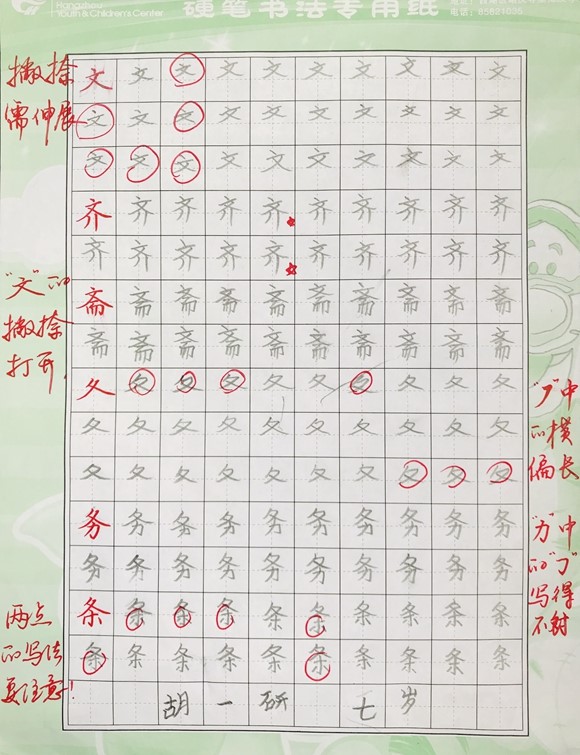 Hangzhou
Youth & Children's Center
硬笔书法专用纸
撇捺
需伸展
文文文文文文文文文文
文文文文文文文文文文
文文文文文文文文文文
齐齐齐齐齐齐齐齐齐齐
齐齐齐齐齐齐齐齐齐齐
"文"的
撇捺
打开.
斋斋斋斋斋斋斋斋斋斋
斋斋斋斋斋斋斋斋斋斋
夂夂夂夂夂夂夂夂夂夂
夂夂夂夂夂夂夂夂夂夂
夂夂夂夂夂夂夂夂夂夂
"㇇"中
的横
偏长
务务务务务务务务务务
务务务务务务务务务务
"力"中
的"㇆"
写得
不对
条条条条条条条条条条
条条条条条条条条条条
两点
的写法
要注意!
胡一研 七岁